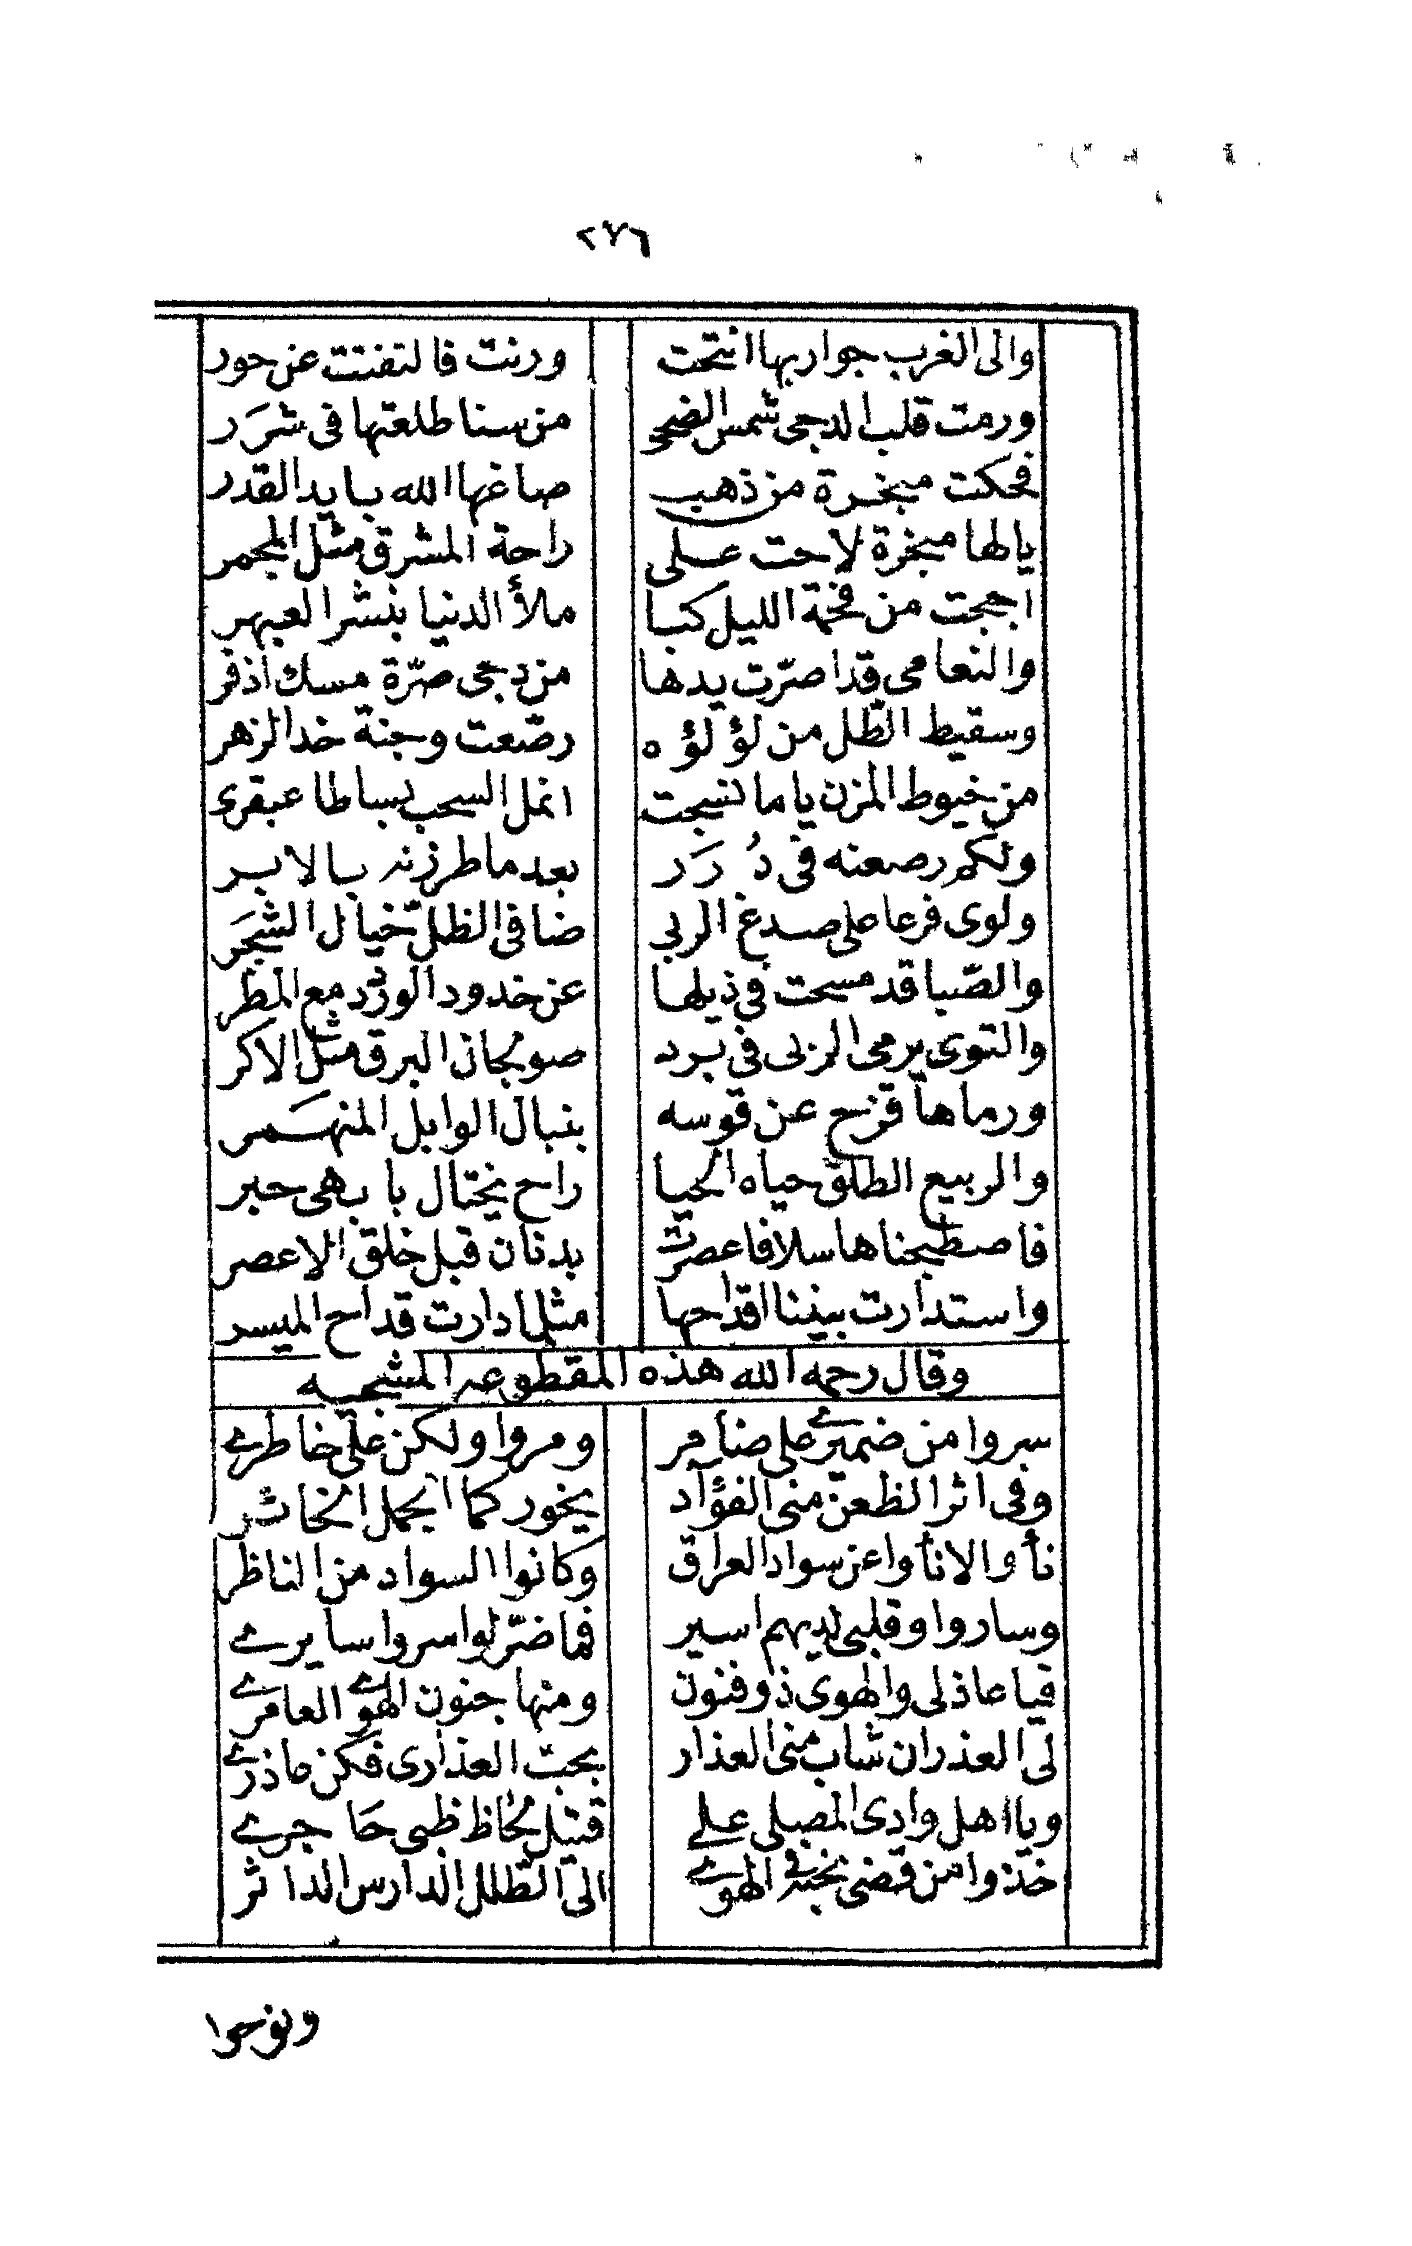 ٢٧٦
والى الغرب جواريها انتحت ورنت فالتفتت عن حور
ورمت قلب الدجى شمس الضحى من سنا طلعتها فى شرَر
فحكت مبخرة من ذهب صاغها الله بايد القدر
يالها مبخرة لاحت على راحة المشرق مثل المجمر
اججت من فحمة الليل كبا ملأ الدنيا بنشر العبهر
والنعامى قد اصرّت يدها من دجى صرّة مسك اذفر
وسقيط الطّل من لؤلؤه رصّعت وجنة خد الزهر
من خيوط المزن ياما نسجت انمل السحب بساطا عبقرى
ولكم رصعنه فى دُرَر بعد ما طرزنه بالابر
ولوى فرعا على صدغ الربى ضافى الظلّ خيال الشجَر
والصّبا قد مسحت فى ذيلها عن خدود الورْد مع المطر
والتوى يرمى الربى فى برد صولجان البرق مثل الاكر
ورماها قزح عن قوسه بنبال الوابل المنهَمر
والربيع الطلق حياه الحيا راح يختال بابهى حبر
فاصطبحناها سلافا عصرت بدنان قبل خلق الاعصر
واستدارت بيننا اقداحها مثلما دارت قداح الميسر
وقال رحمه الله هذه المقطوعه المشجيه
سروا من ضميرى على ضامر ومروا ولكن على خاطرى
وفى اثر الظعن منى الفؤاد يخور كما الجمل الخائر
نأوا لا نأوا عن سواد العراق وكانوا السواد من الناظر
وساروا وقلبى لديهم اسير فما ضرّ لو اسروا سايرى
فيا عاذلى والهوى ذو فنون ومنها جنون الهوى العامرى
لى العذر ان شاب منى العذار بحب العذارى فكن عاذرى
ويا اهل وادى المصلى على قتيل لحاظ ظبى حَاجرى
خذوا من قضى نحبه فى الهوى الى الطّلل الدارس الداثر
ونوحوا